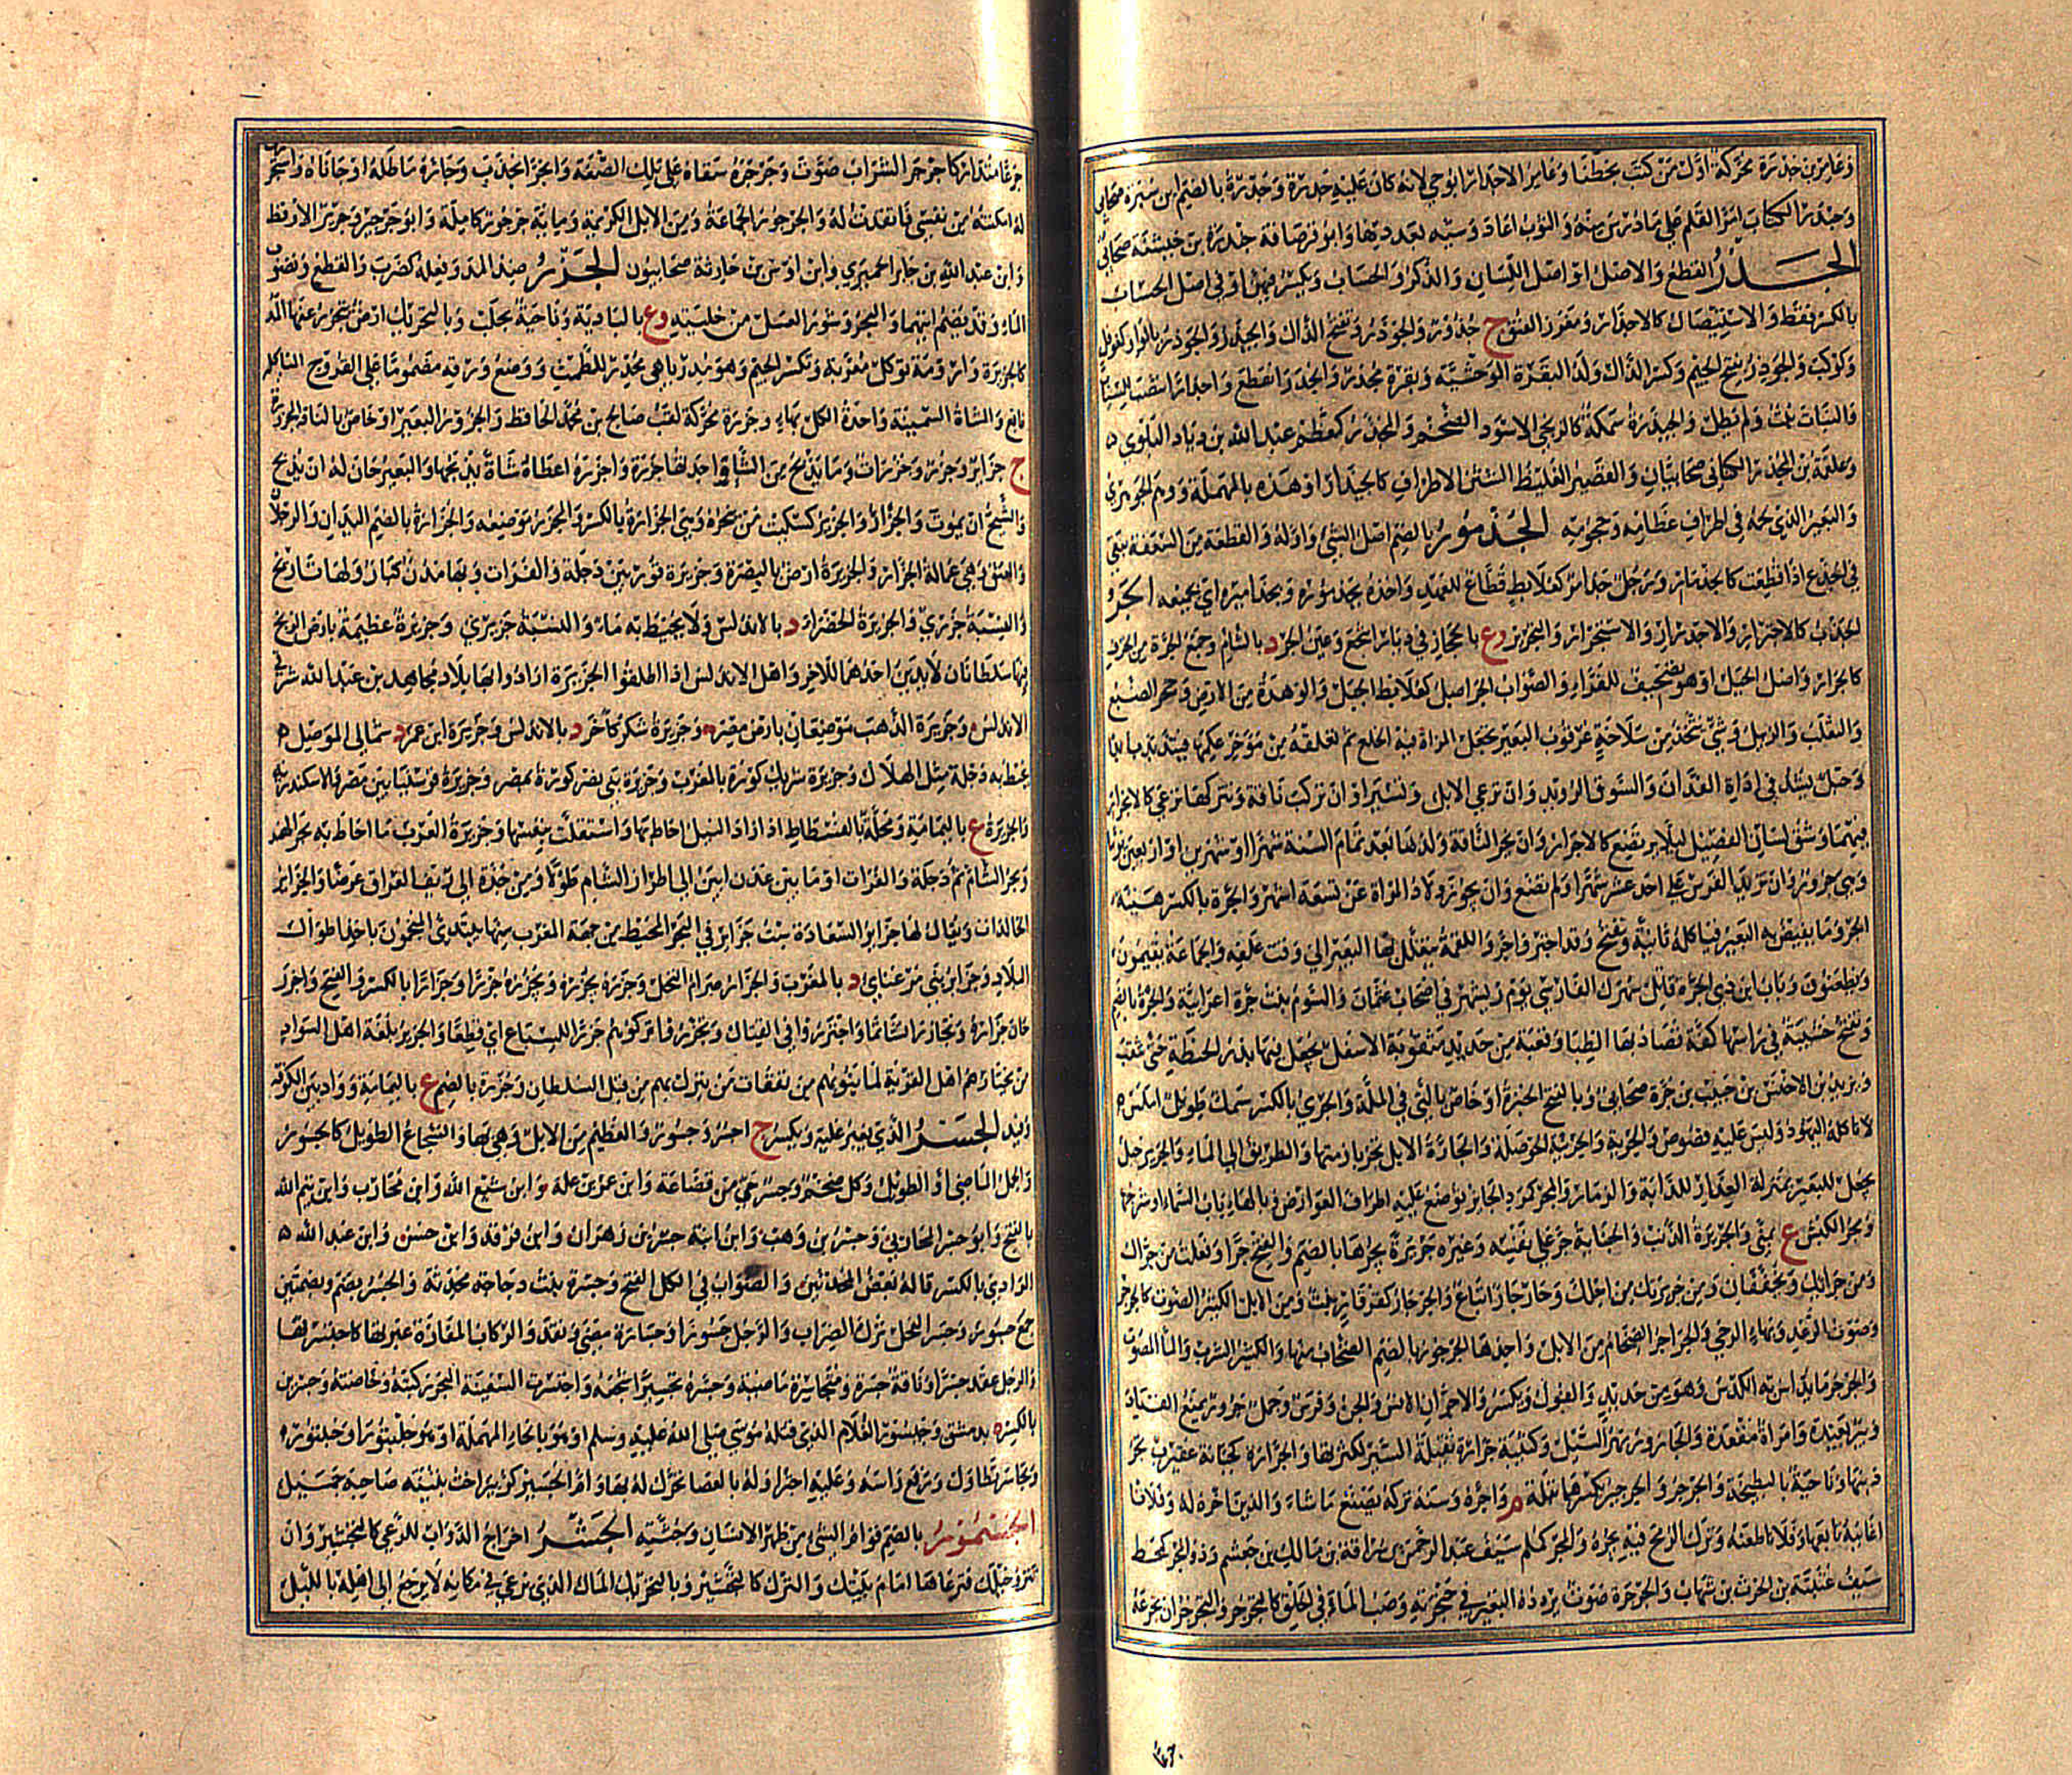 وَعَامِرُ بن جَدَرَة محرّكةً اوّل من كتب بخطنا وعامر الاجدار ابو حي لانه كان عليه جدرة وجُدْرة بالضم ابن سبرة صحابي
وجندر الكتاب امر القلم على ما درس منه والثوب اعاد وشيه بعد دهابها وابو قرصافة جندرة بن خيشنة صحابي
الجذر القطع والاصل او اصل اللسان والذكر والحساب ويكسر فيهن او في اصل الحساب
بالكسر فقط والاستيصال كالاجذار ومغرز العنق ج جذور والجوذر وتفتح الذال والجيذر والجوذر بالواو كفوفل
وكوكب والجوذر بفتح الجيم وكسر الذال ولد البقرة الوحشية وبقرة مجذر وانجذر انقطع واجذار انتصب للسباب
والنبات نبت ولم يطل والجيذرة سمكة كالزنجي الاسود الضخم والمجذر كمعظم عبد الله بن زياد البلوي
وعلقمة بن المجذر الكناني صحابيان والقصير الغليظ الشثن الاطراف كالجيذار او هذه بالمهملة ووهم الجوهري
والبعير الذي لحمه في اطراف عظامه وحجومه الجذمور بالضم اصل الشئ واوله والقطعة من السعفة تبقى
في الجذع اذا قطعت كالجذمار ورجل جذامر كعلابط قطاع للعهد واخذه بجذموره وبجذاميره اي بجميعه الجر
الجذب كالاجترار والاجدرار والاستجرار والتجرير وع بالحجاز في ديار اشجع وعين الجر د بالشام وجمع الجرة من الخزف
كالجرار واصل الجبل او هو تصحيف للفراء والصواب الجراصل كعلابط الجبل والوهدة من الارض وجحر الضبع
والثعلب والزبيل وشئ يتخذ من سلاخة عرقوب البعير تجعل المراة فيه الخلع ثم تعلقه من مؤخر عكمها فيتذبذب ابدا
وحبل يشد في اداة الفدان والسوق الرويد وان ترعى الابل وتسير او ان تركب ناقة وتتركها ترعى كالانجرار
فيهما وشق لسان الفصيل ليلا يرتضع كالاجرار وان تجر الناقة ولدها بعد تمام السنة شهرا او شهرين او اربعين يوما
وهي جرور وان تزيد الفرس على احد عشر شهرا ولم تضع وان يجوز ولاد المراة عن تسعة اشهر والجرة بالكسر هيئة
الجر وما يفيض به البعير فياكله ثانية وتفتح وقد اجتر واجر واللقمة يتعلل بها البعير الى وقت علفه والجماعة يقيمون
ويظعنون وباب ابن ذي الجرة قاتل شهرك الفارسي يوم ريشهر في اصحاب عثمان والسوم بنت جرة اعرابية والجرة بالضم
وتفتح خشبية في راسها كفة تصاد بها الظبا وقعبة من حديد مثقوبة الاسفل يجعل فيها بذر الحنطة حتى تبذر
ويزيد بن الاخنس بن حبيب بن جرة صحابي وبالفتح الخبزة او خاص بالتي في الملة والجري بالكسر سمك طويل املس
لا تاكله اليهود وليس عليه فصوص والجرية والجرية الحوصلة والجارة الابل تجر بازمتها والطريق الى الماء والجرير حبل
يجعل للبعير بمنزلة العذار للدابة والزمام والمجر كمرد الجائز توضع عليه اطراف العوارض وبالهاء باب السماء او شرجها
ومجر الكبش ع بمنى والجريرة الذنب والجناية جر على نفسه وغيره جريرة يجرها بالضم والفتح جرا وفعلت من جراك
ومن جرائك ويخففان ومن جريرتك من اجلك وحار جار اتباع والجرجار كقرقار نبت ومن الابل الكثير الصوت كالجرجر
وصوت الرعد وبهاء الرحى والجراجر الضخام من الابل واحدها الجرجور بالضم العظام منها والكثير الشرب والماء المصوت
والجرجر ما يداس به الكدس وهو من حديد والفول ويكسر والاجران الانس والجن وفرس وجمل جرور يمنع القياد
وبئر بعيدة وامراة مقعدة والجارور نهر السيل وكتيبة جرارة ثقيلة السير لكثرتها والجرارة كجبانة عقيرب تجر
ذنبها وناحية بالبطيحة والجرجر والجرجير بكسرهما بقلة م واجره رسنه تركه يصنع ما شاء والدين اخره له وفلانا
اغانيه تابعها وفلانا طعنه وترك الرمح فيه يجره والمجر كملم سيف عبد الرحمن بن سراقة بن مالك بن جعشم وذو المجر كمحط
سيف عتيبة بن الحرث بن شهاب والجرجرة صوت يردده البعير في حنجرته وصب الماء في الحلق كالتجرجر والتجرجر ان تجرعه
جرعا متداركا جرجر الشراب صوت وجرجره سقاه على تلك الصفة وانجر انجذب وجاره ماطله او جاباه واستجر
له امكنته من نفسي فانقدت له والجرجور الجماعة ومن الابل الكريمة ومائة جرجور كاملة وابو جرير وجرير الارقط
وابن عبد الله بن جابر الحميري وابن اوس بن حارثة صحابيون الجزر ضد المد وفعله كضرب والقطع ونضوب
الماء وقد يضم اتيهما والبحر وشور العسل من خليته وع بالبادية وناحية بحلب وبالتحريك ارض ينجزر عنها المد
كالجزيرة وارومة توكل معربة وتكسر الجيم وهو مدر باهي محدر للطمث ووضع ورقه مضموما على القروح المتاكلة
نافع والشاة السمينة واحدة الكل بهاء وجزرة محركة لقب صالح بن محمد الحافظ والجزور البعير او خاص بالناقة المجزورة
ج جزائر وجزر وجزرات وما يذبح من الشاء واحدتها جزرة واجزره اعطاه شاة يذبحها والبعير حان له ان يذبح
والشيخ ان يموت والجزار والجزير كسكيت من ينحره وهي الجزارة بالكسر والمجزر موضعه والجزارة بالضم اليدان والرجلان
والعنق وهي عمالة الجزار والجزيرة ارض بالبصرة وجزيرة قور بين دجلة والفرات وبها مدن كبار ولها تاريخ
والنسبة جزري والجزيرة الخضراء د بالاندلس ولا يحيط به ماء والنسبة جزيري وجزيرة عظيمة بارض الزنج
فيها سلطانان لا يدين احدهما للاخر واهل الاندلس اذا اطلقوا الجزيرة ارادوا بها بلاد مجاهد بن عبد الله شرقي
الاندلس وجزيرة الذهب موضعان بارض مصر وجزيرة شكر كاخر د بالاندلس وجزيرة ابن عمر د شمالي الموصل
يحيط به دجلة مثل الهلال وجزيرة شريك كورة بالغرب وجزيرة بني نصر كورة بمصر وجزيرة قوسنيا بين مصر والاسكندرية
والجزيرة ع باليمامة ومحلة بالفسطاط اذا زاد النيل احاط بها واستقلت بنفسها وجزيرة العرب ما احاط به بحر الهند
وبحر الشام ثم دجلة والفرات او ما بين عدن ابين الى اطراز الشام طولا ومن جدة الى ريف العراق عرضا والجزائر
الخالدات ويقال لها جزائر السعادة ست جزائر في البحر المحيط من جهة المغرب منها يبتدئ المنجمون باخذ اطوال
البلاد وجزائر بني مرغناي د بالمغرب والجزار صرام النخل وجزره يجزره ويجزره جزرا وجزارا بالكسر والفتح واجزر
حان جزاره وتجازرا تشاتما واجتزروا في القتال وتجزروا تركوهم جزرا للسباع اي قطعا والجزير بلغة اهل السواد
من يختاره اهل القرية لما ينوبهم من نفقات من ينزل بهم من قبل السلطان وجزرة بالضم ع باليمامة وواد بين الكوفة
وفيد الجسر الذي يعبر عليه ويكسر ج اجسر وجسور والعظيم من الابل وهي بهاء والشجاع الطويل كالجسور
والجمل الماضي او الطويل وكل ضخم وجسر حي من قضاعة وابن عمرو بن علة وابن شيع الله وابن محارب وابن تيم الله
بالفتح وابو جسر المحاربي وجسر بن وهب وابن ابنه جسر بن زهران وابن فرقد وابن حسن وابن عبد الله
المرادي بالكسر قاله بعض المحدثين والصواب في الكل الفتح وجسرة بنت دجاجة محدثة والجسر بضم وبضمتين
جمع جسور وجسر الفحل ترك الضراب والرجل جسورا وجسارة مضى ونفذ والركاب المفازة عبرتها كاجتسرتها
والرجل عقد جسرا وناقة جسرة ومتجاسرة ماضية وجسره تجسيرا شجعه واجتسرت السفينة البحر ركبته وخاضته وجسرين
بالكسر ة بدمشق وجيسور الغلام الذي قتله موسى صلى الله عليه وسلم او هو بالحاء المهملة او هو جلبتور او جنبتور
وتجاسر تطاول ورفع راسه وعليه اجترا وله بالعصا تحرك له بها وام الجسير كزبير اخت بثينة صاحبة جميل
الجسمور بالضم قوام الشئ من ظهر الانسان وجثته الجشر اخراج الدواب للرعي كالتجشير وان
تنزو خيلك فترعاها امام بيتك والترك كالتجشير وبالتحريك المال الذي يرعى في مكانه لا يرجع الى اهله بالليل